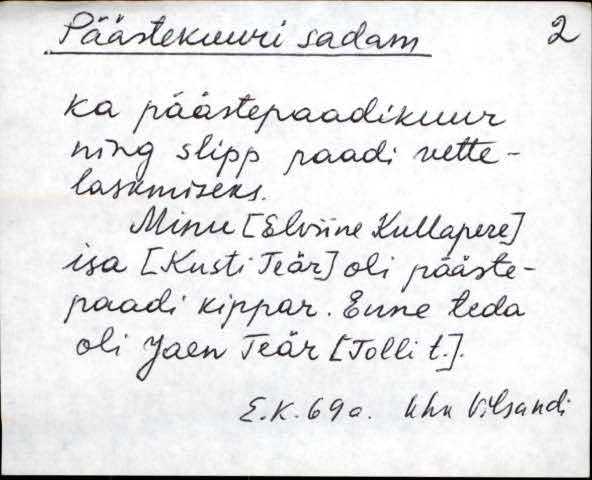 Päästekuuri sadam 2
ka päästepaadikuur
ning slipp paadi vette-
laskmiseks.
Minu [Elviine Kullapere]
isa [Kusti Teär] oli pääste-
paadi kippar. Enne teda
oli Jaen Teär [Tolli t.].
E.K. 69 a. Khk Vilsandi